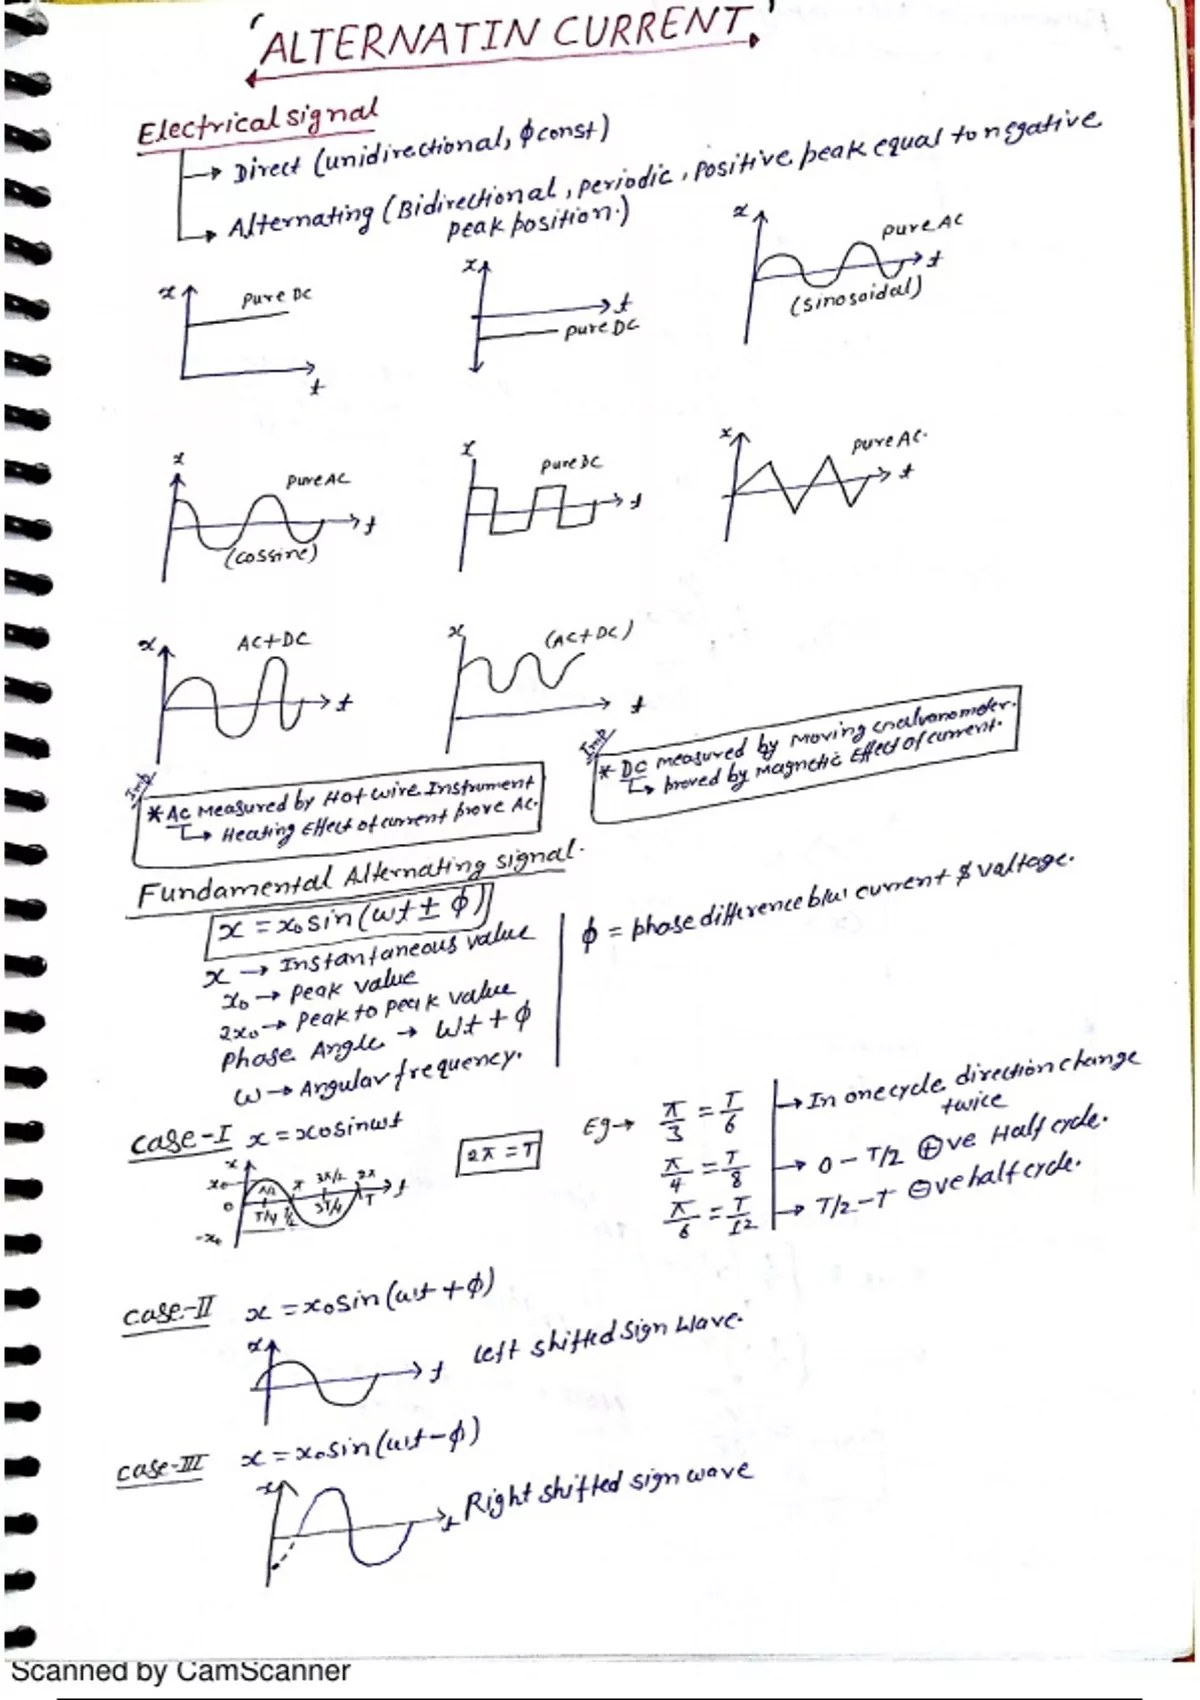 'ALTERNATIN CURRENT'
Electrical signal
→ Direct (unidirectional, ϕ const)
→ Alternating (Bidirectional, periodic, positive peak equal to negative
peak position.)
x Pure DC t
x t pure DC
x pure AC t
(sinosoidal)
x pure AC t
(cossine)
x pure DC t
x pure AC. t
x AC+DC t
x (AC+DC) t
Imp
* AC measured by Hot wire Instrument
→ Heating Effect of current prove AC.
Imp
* DC measured by moving Gnalvanometer.
→ proved by Magnetic Effect of current.
Fundamental Alternating signal.
x = x₀ sin (ωt ± ϕ)
x → Instantaneous value
x₀ → peak value
2x₀ → peak to peak value
Phase Angle → ωt + ϕ
ω → Angular frequency.
ϕ = phase difference b/w current & voltage.
Case-I x = x₀ sinωt
x x₀ 0 -x₀ π/2 π 3π/2 2π t
T/4 T/2 3T/4 T
2π = T
Eg → π/3 = T/6
π/4 = T/8
π/6 = T/12
→ In one cycle direction change
twice
→ 0 – T/2 ⊕ve Half cycle.
→ T/2 – T ⊖ve half cycle.
Case-II x = x₀ sin (ωt + ϕ)
x t left shifted sign wave.
Case-III x = x₀ sin (ωt – ϕ)
x t Right shifted sign wave
Scanned by CamScanner